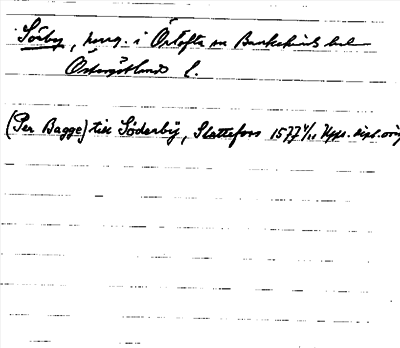 Sörby, herrg. i Örtofta sn Bankekinds hd
Östergötlands l.
(Per Bagge) till Söderby, Slattefors 1577 4/11 Upps. dipl. orig